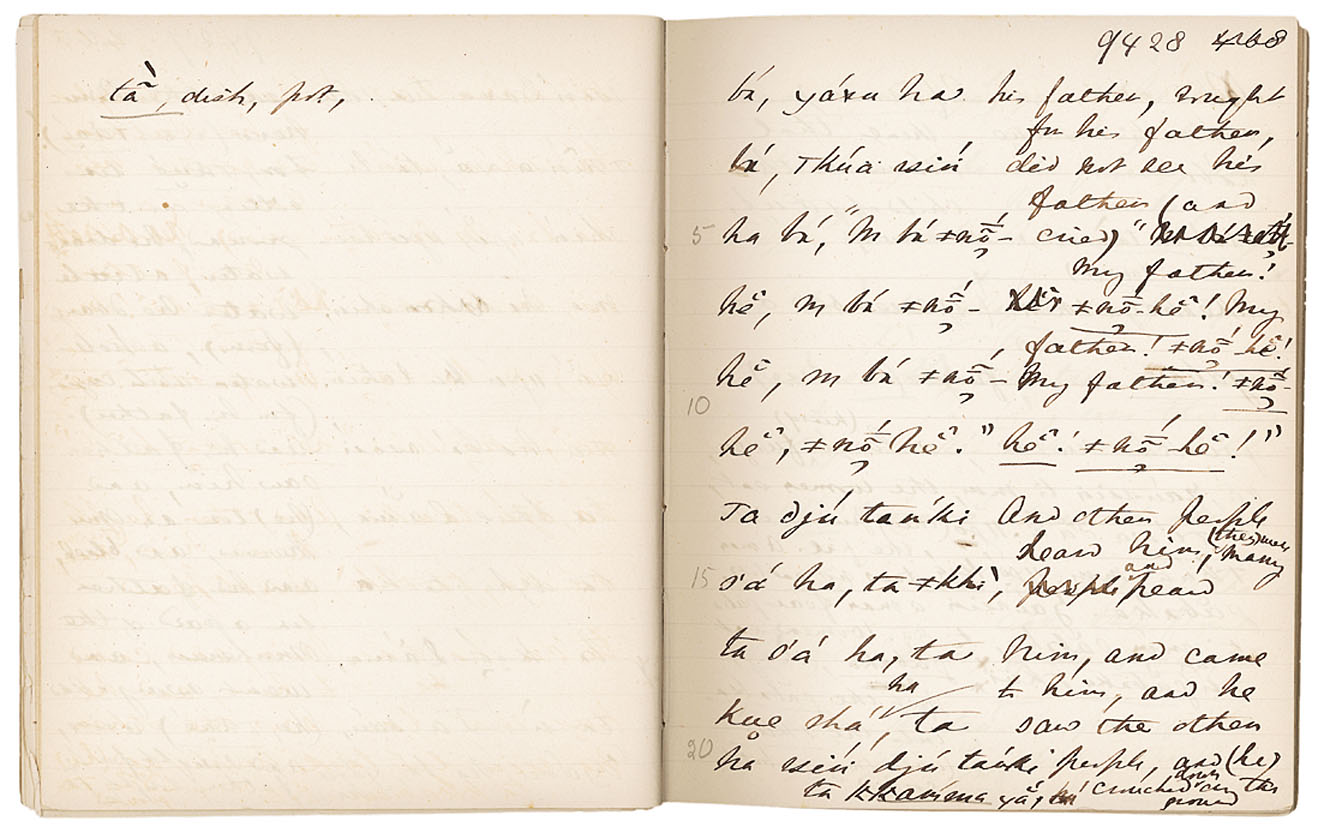 tã̀, dish, pot,
9428 468
bá, yáxu ha his father, sought
for his father,
bá, ɪkúa siń did not see his
father (and
5 ha bá, "M bá ǂnṍ- cried) "
My father!
hĕ, m bá ǂnṍ- ǂnṍ-hĕ! My
father! ǂnṍ-hĕ!
hĕ, m bá ǂnṍ- My father! ǂnṍ-
10
hĕ, ǂnṍ hĕ!" hĕ! ǂnṍ-hĕ!"
Ta djú tańki And other people
heard him, (they) were
many
15 s'á ha, ta ǂkhi, and heard
ta s'á ha, ta him, and came
ha to him, and he
kue shá, ta saw the other
20 ha siń djú tańki people, and (he)
ta crouched down on the
ground